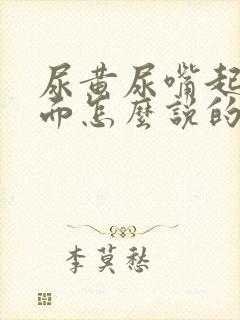 尿黄尿嘴起
而怎麼說的
李莫愁